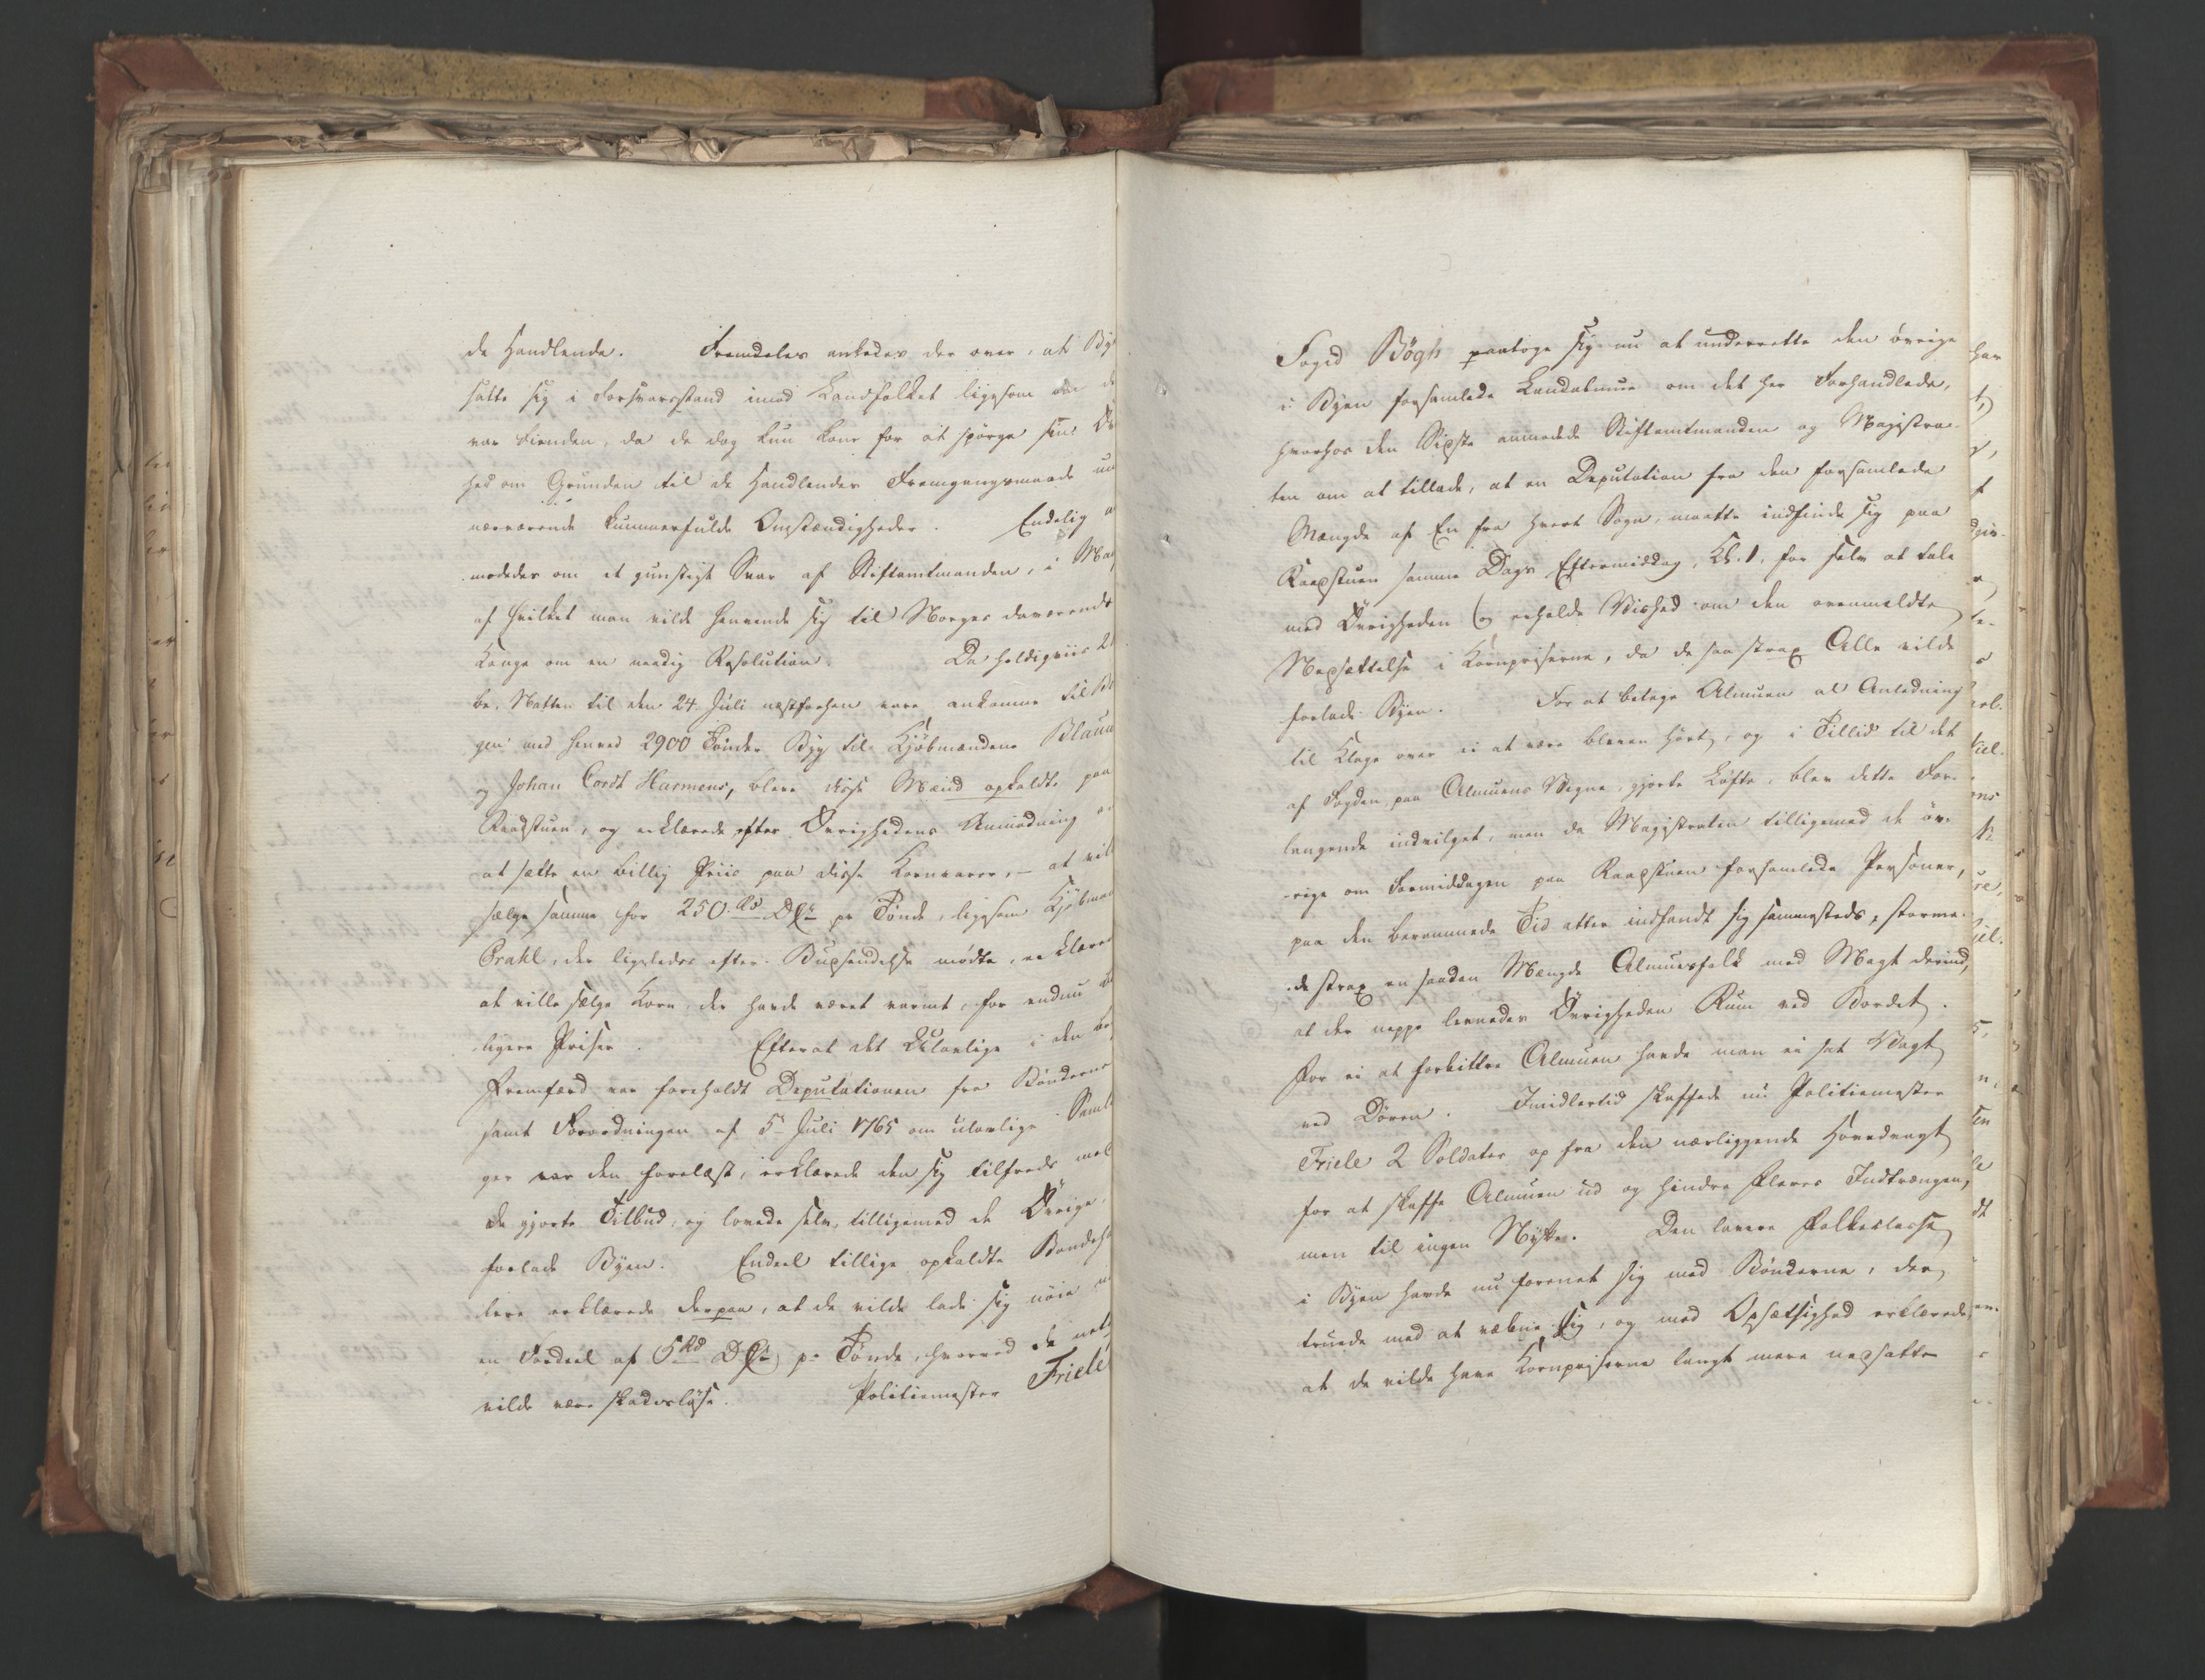 de Handlende. Fremdeles ankedes der over, at By
satte sig i Forsvarsstand imod Landfolket ligesom om de
var Fienden, da de dog kun kom for at spörge sin Öv
hed om Grunden til de Handlendes Fremgangsmaade un
nærværende kummerfulde Omstændigheder. Endelig
modedes om et gunstigt Svar af Stiftamtmanden, i Man
af hvilket man vilde henvende sig til Norges daværende
Konge om en naadig Resolution. Da heldigviis 2
be. Natten til den 24. Juli næstforhen vare ankomne til Be
gen med henved 2900 Tönder Byg til Kjöbmændene Blauu
og Johan Cordt Harmens, bleve disse Mænd opkaldte paa
Raadstuen, og erklærede efter Övrighedens Anmodning
at sætte en billig Priis paa disse Kornvarer, – at vil
sælge samme for 250 Rd D.C. pr Tönde, ligesom Kjöbman
Prahl, der ligeledes efter Budsendelse mødte, erklære
at ville sælge Korn, der havde været varmt, for endnu
ligere Priser. Efterat det Ulovlige i den
Fremfærd var foreholdt Deputationen fra Bönderne
samt Forordningen af 5 Juli 1765 om ulovlige Saml
ger var den forelæst, erklærede den sig tilfreds med
de gjorte Tilbud, og lovede selv, tilligemed de Övrige,
forlade Byen. Endeel tillige opkaldte Bondeha
lere erklærede derpaa, at de vilde lade sig nöie
en Fordeel af 5 Rd D.C. pr Tönde, hvorved de
vilde være skadeslöse. Politiemester Friele
Foged Bögh paatoge sig nu at underrette den övrige
i Byen forsamlede Landalmue om det her Forhandlede,
hvorhos den Sidste anmodede Stiftamtmanden og Magistra-
ten om at tillade, at en Deputation fra den forsamlede
Mængde af En fra hvert Sogn, maatte indfinde sig paa
Raadstuen samme Dags Eftermiddag, Kl. 1. for selv at tale
med Övrigheden og erholde Vished om den ovenmeldte
Nedsættelse i Kornpriserne, da de saa strax Alle vilde
forlade Byen. For at betage Almuen al Anledning
til Klage over ei at være bleven hört, og i Tillid til det
af Fogden, paa Almuens Vegne, gjorte Löfte, blev dette For-
langende indvilget, men da Magistraten tilligemed de öv-
rige om Formiddagen paa Raadstuen forsamlede Personer,
paa den berammede Tid atter indfandt sig sammesteds, storme-
de strax en saadan Mængde Almuesfolk med Magt derind,
at der neppe levnedes Övrigheden Rum ved Bordet.
For ei at forbittre Almuen havde man ei sat Vagt
ved Dören. Imidlertid skaffede nu Politiemester
Friele 2 Soldater op fra den nærliggende Hovedvagt
for at skaffe Almuen ud og hindre Fleres Indtrængen,
men til ingen Nytte. Den lavere Folkeclasse
i Byen havde nu forenet sig med Bönderne, der
truede med at væbne sig, og med Opsætsighed erklærede,
at de vilde have Kornpriserne langt mere nedsatte